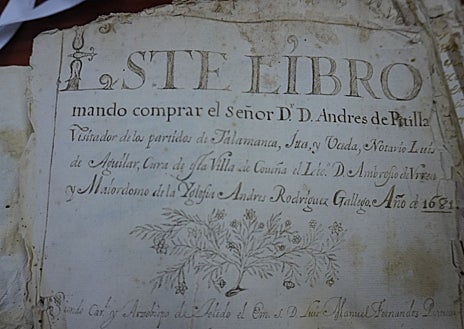 ESTE LIBRO
mando comprar el Señor Dr. D. Andres de Pitilla
Visitador de los partidos de Talamanca, Ita, y Uceda, Notario Luis
de Aguilar, Cura de esta Villa de el Licdo. D. Ambrosio de
y Maiordomo de la Yglesia Andres Rodriguez Gallego, Año de 1681
siendo Car.l y Arzobispo de Toledo el Em. S. D. Luis Manuel Fernandez